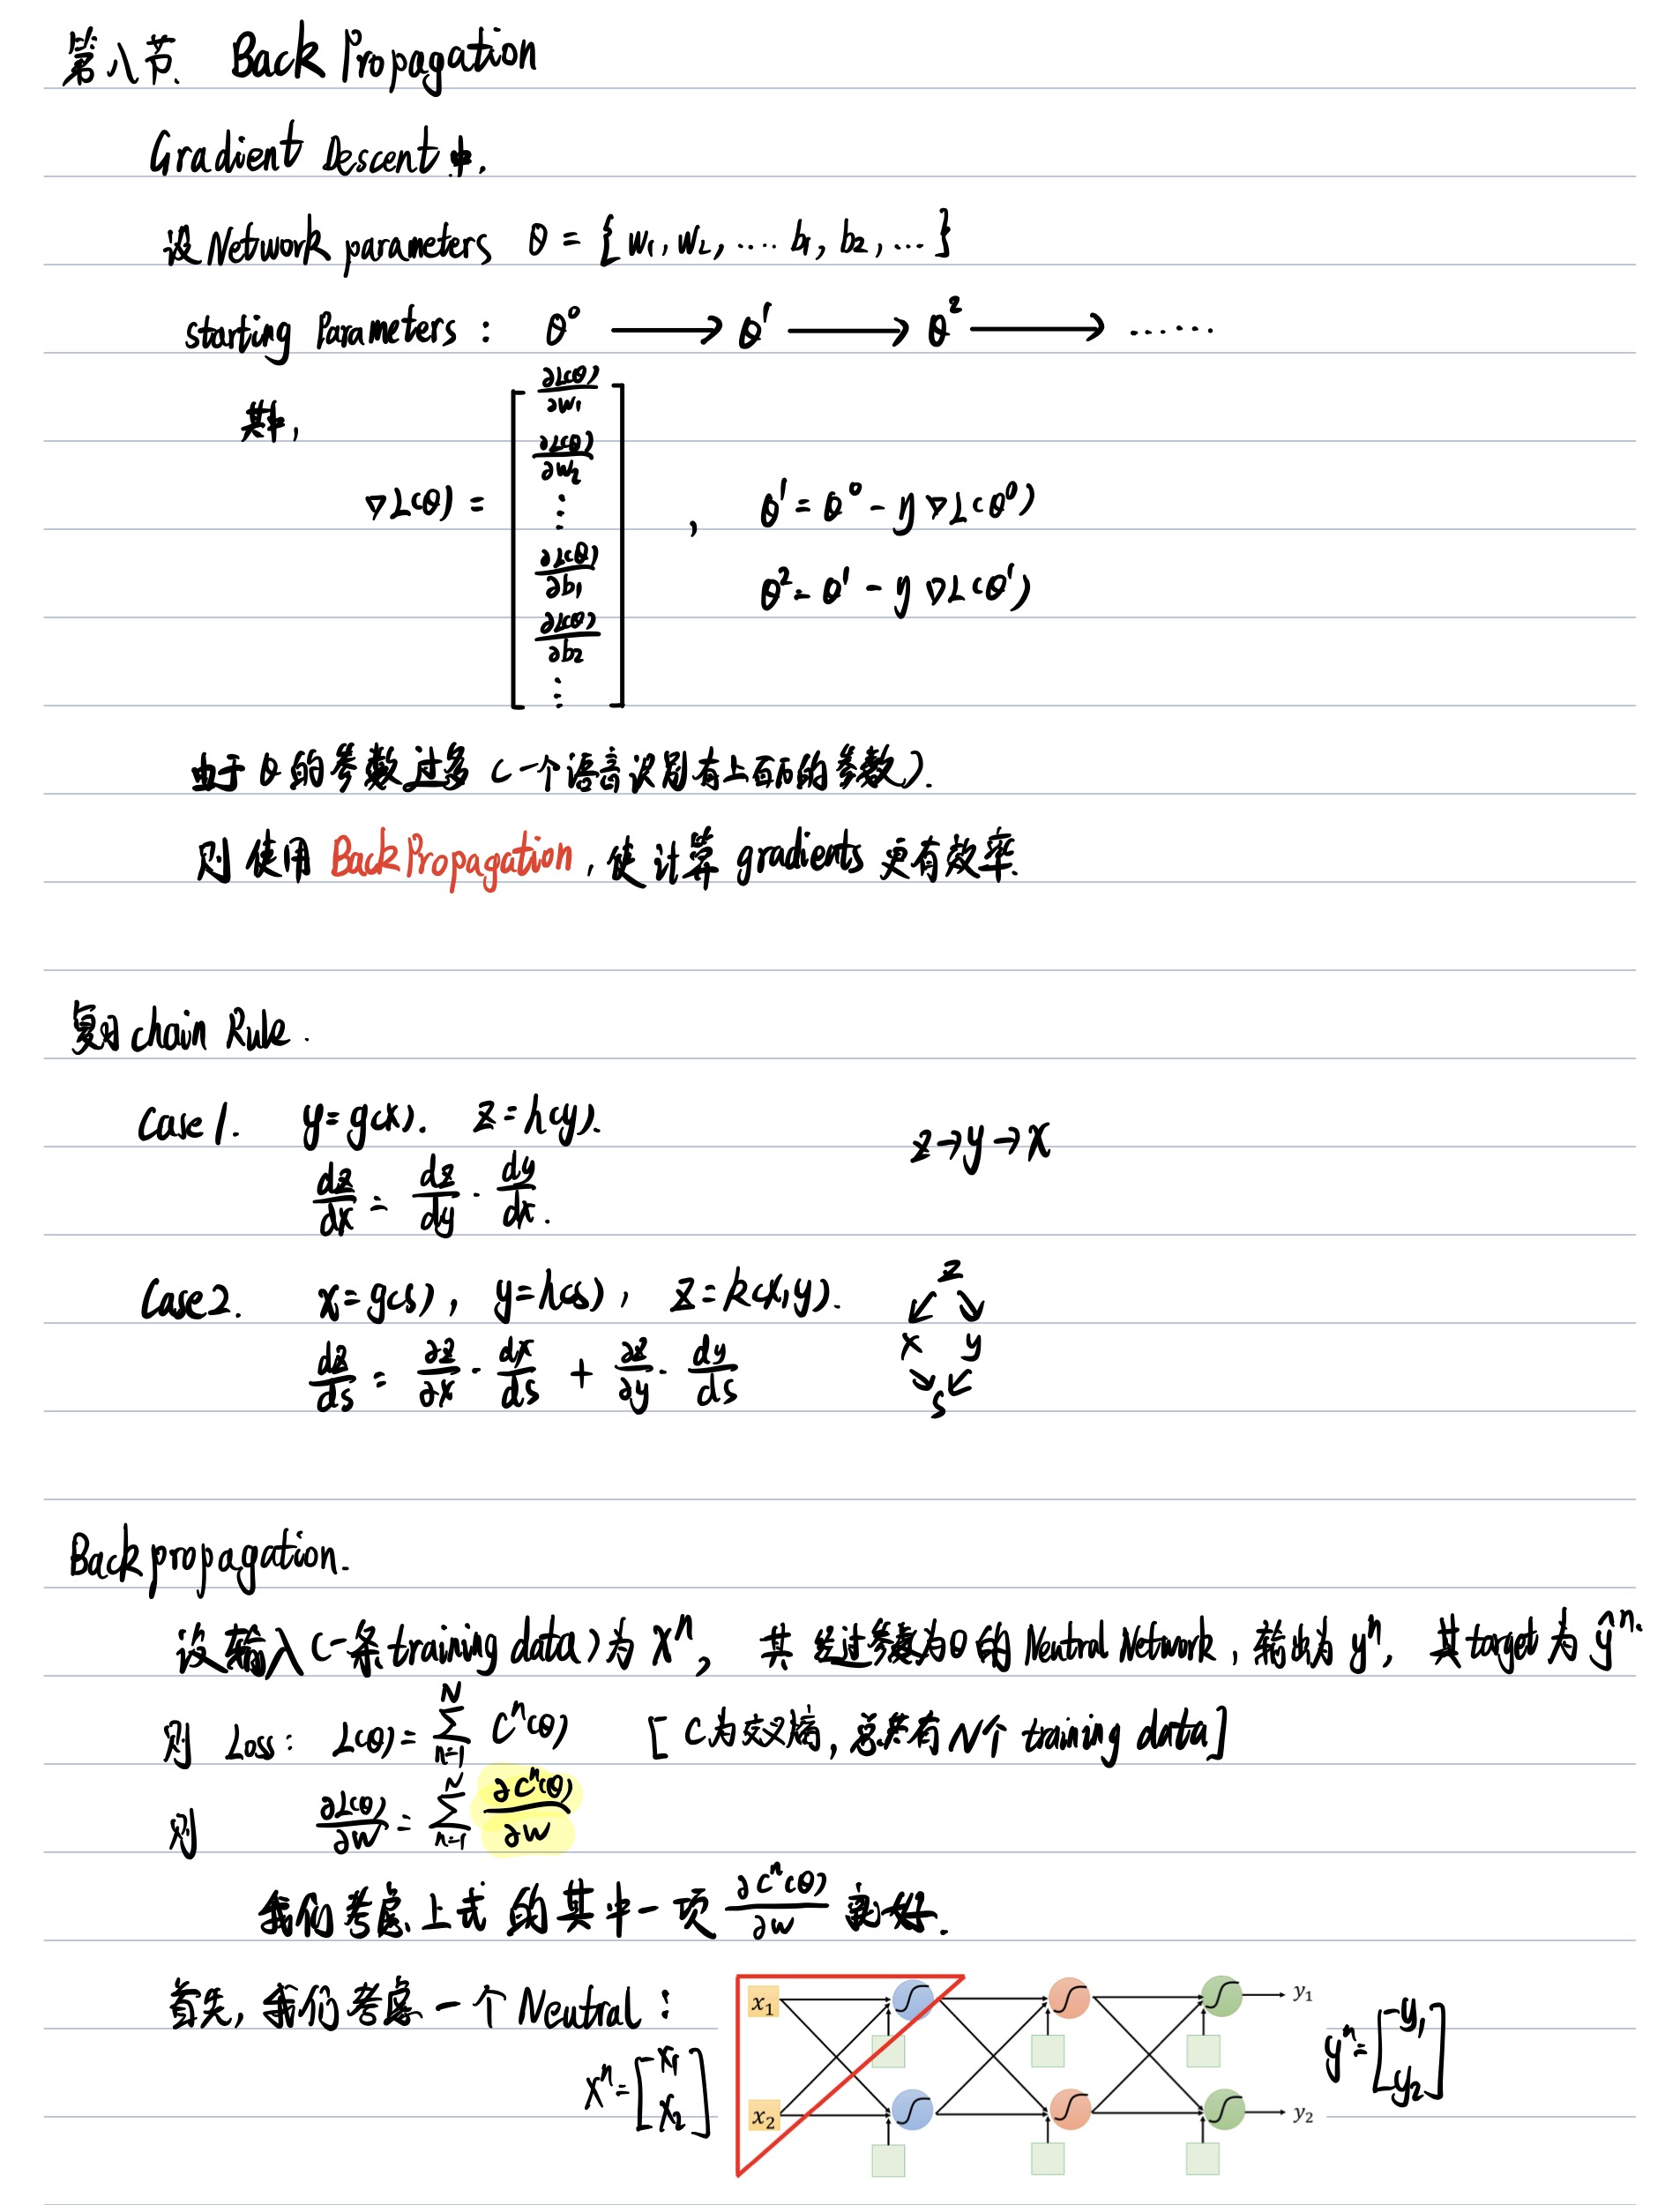 第八节、 Back Propagation
Gradient Descent中.
设 Network parameters θ = {w₁, w₂, .... b₁, b₂, ...}
starting Parameters : θ⁰ ⟶ θ¹ ⟶ θ² ⟶ ......
其中,
∇L(θ) = [ ∂L(θ)/∂w₁ ∂L(θ)/∂w₂ ⋮ ∂L(θ)/∂b₁ ∂L(θ)/∂b₂ ⋮ ] ,
θ¹ = θ⁰ - η∇L(θ⁰)
θ² = θ¹ - η∇L(θ¹)
由于 θ 的参数过多 (一个语音识别有上百万的参数).
则 使用 Back Propagation, 使计算 gradients 更有效率.
复习 chain Rule.
Case 1. y = g(x). z = h(y). z→y→x
dz/dx = dz/dy · dy/dx.
Case 2. x = g(s), y = h(s), z = k(x,y). z
↙ ↘
x y
dz/ds = ∂z/∂x · dx/ds + ∂z/∂y · dy/ds
↘ ↙
s
Back propagation.
设输入(一条 training data)为 xⁿ, 其 经过参数为θ的 Neutral Network, 输出为 yⁿ, 其 target 为 ŷⁿ.
则 Loss: L(θ) = ∑ₙ₌₁ᴺ Cⁿ(θ) [C为交叉熵, 总共有 N个 training data]
则 ∂L(θ)/∂w = ∑ₙ₌₁ᴺ ∂Cⁿ(θ)/∂w
我们考虑上式 的其中一项 ∂Cⁿ(θ)/∂w 就好.
首先, 我们考虑一个 Neutral :
xⁿ = [x₁ x₂]
x₁
x₂
y₁
y₂
yⁿ = [y₁ y₂]